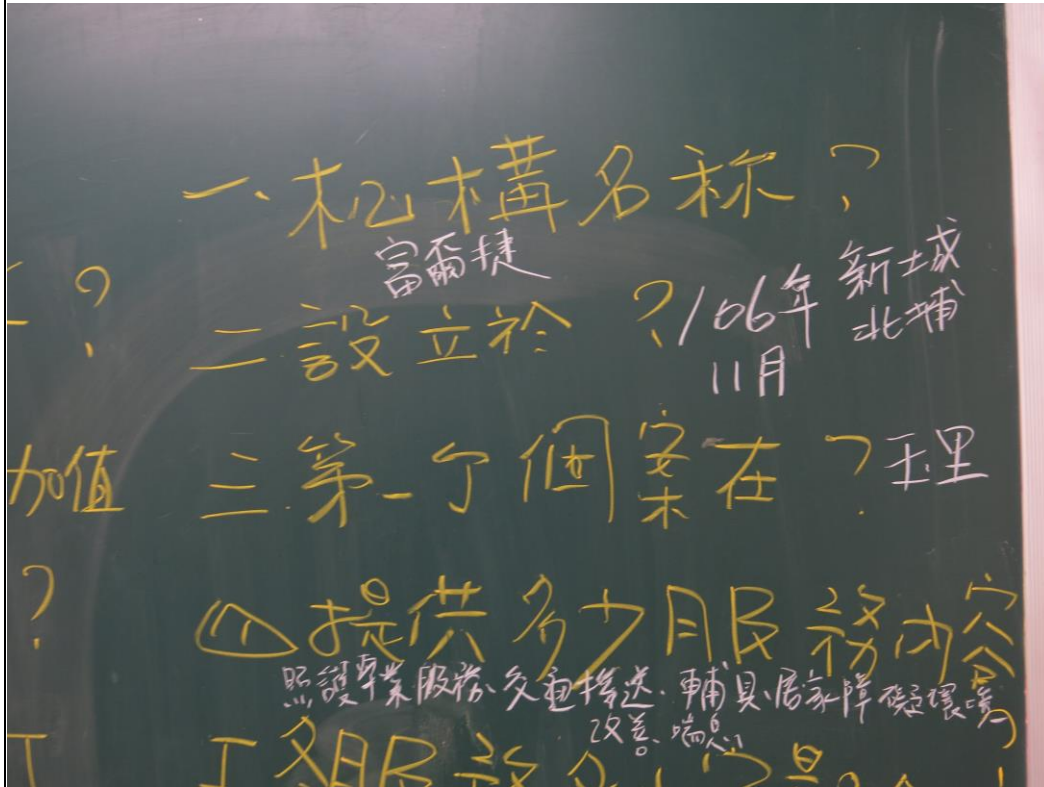 一、机構名称？
富爾捷
？
二.設立於？
106年
11月
新城
北埔
加值
三.第一个個案在？
玉里
？
④提供多少服務内容
照護專業服務、交通接送、輔具、居家障礙環境
改善、喘息